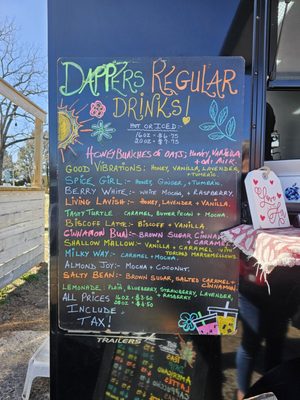 DAPPERS REGULAR
DRINKS!
HOT OR ICED
16oz - $4.75
20oz - $7.75
HONEYBUNCHES OF OATS: HONEY, VANILLA
+ OAT MILK.
GOOD VIBRATIONS: HONEY, VANILLA, LAVENDER
+ TUMERIC.
SPICE GIRL: HONEY, GINGER, + TUMERIC.
BERRY WHITE:- WHITE MOCHA, + RASPBERRY.
LIVING LAVISH:- HONEY, LAVENDER + VANILLA.
TASTY TURTLE CARAMEL, BUTTER PECAN + MOCHA.
BISCOFF LATTE:- BISCOFF + VANILLA.
CINNAMON BUN:- BROWN SUGAR CINNAMON
+ CARAMEL
SHALLOW MALLOW:- VANILLA + CARAMEL WITH
TORCHED MARSHMALLOWS
MILKY WAY:- CARAMEL + MOCHA.
ALMOND JOY:- MOCHA + COCONUT.
SALTY BEAN:- BROWN SUGAR, SALTED CARAMEL +
CINNAMON.
LEMONADE: PLAIN, BLUEBERRY, STRAWBERRY, LAVENDER,
+ RASPBERRY.
ALL PRICES 16oz - $3.50
INCLUDE 20oz - $4.50
TAX!
TRAILERS